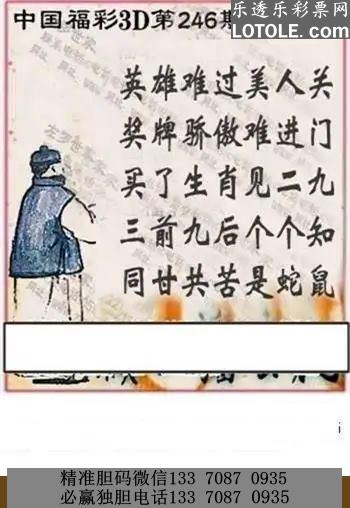 乐透乐彩票网
LOTOLE.COM
中国福彩3D第246期
英雄难过美人关
奖牌骄傲难进门
买了生肖见二九
三前九后个个知
同甘共苦是蛇鼠
i
精准胆码微信133 7087 0935
必赢独胆电话133 7087 0935